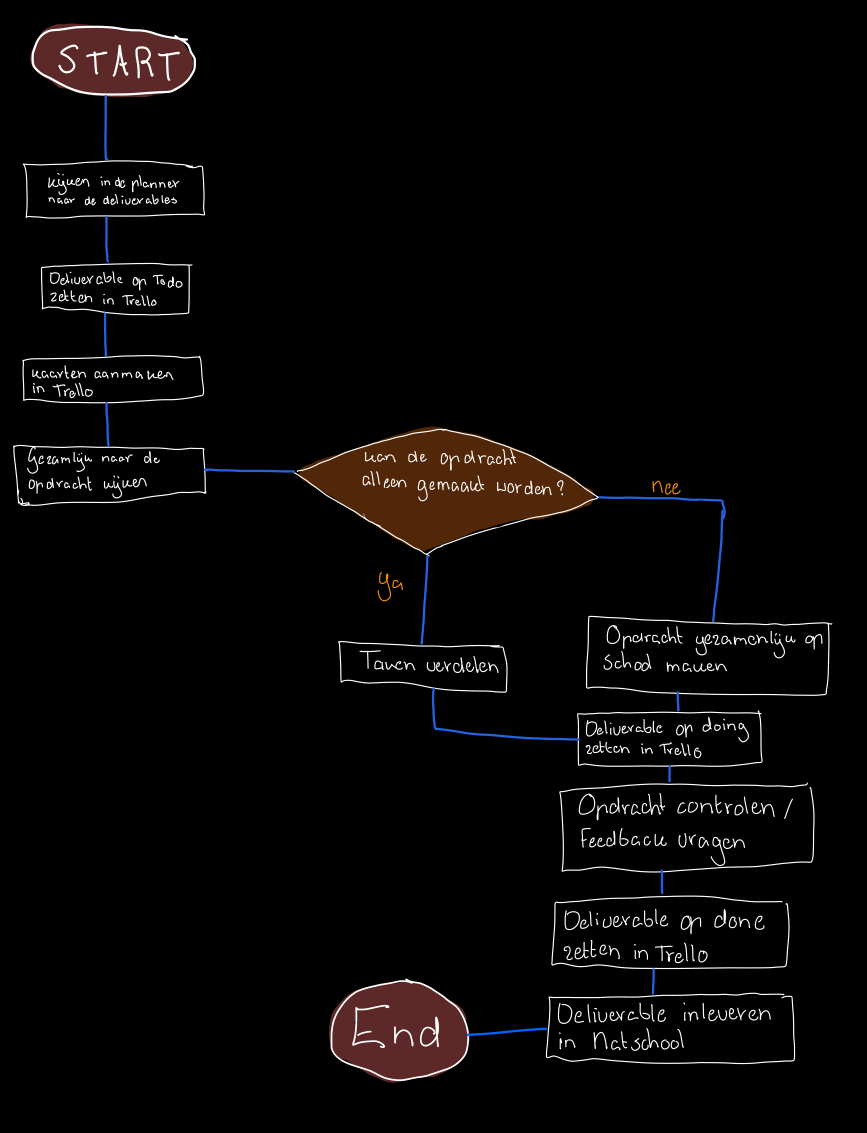 START
kijken in de planner
naar de deliverables
Deliverable op Todo
zetten in Trello
kaarten aanmaken
in Trello
Gezamlijk naar de
opdracht kijken
kan de opdracht
alleen gemaakt worden?
nee
Ya
Taken verdelen
Opdracht gezamenlijk op
School maken
Deliverable op doing
zetten in Trello
Opdracht controlen /
Feedback vragen
Deliverable op done
zetten in Trello
Deliverable inleveren
in Natschool
End